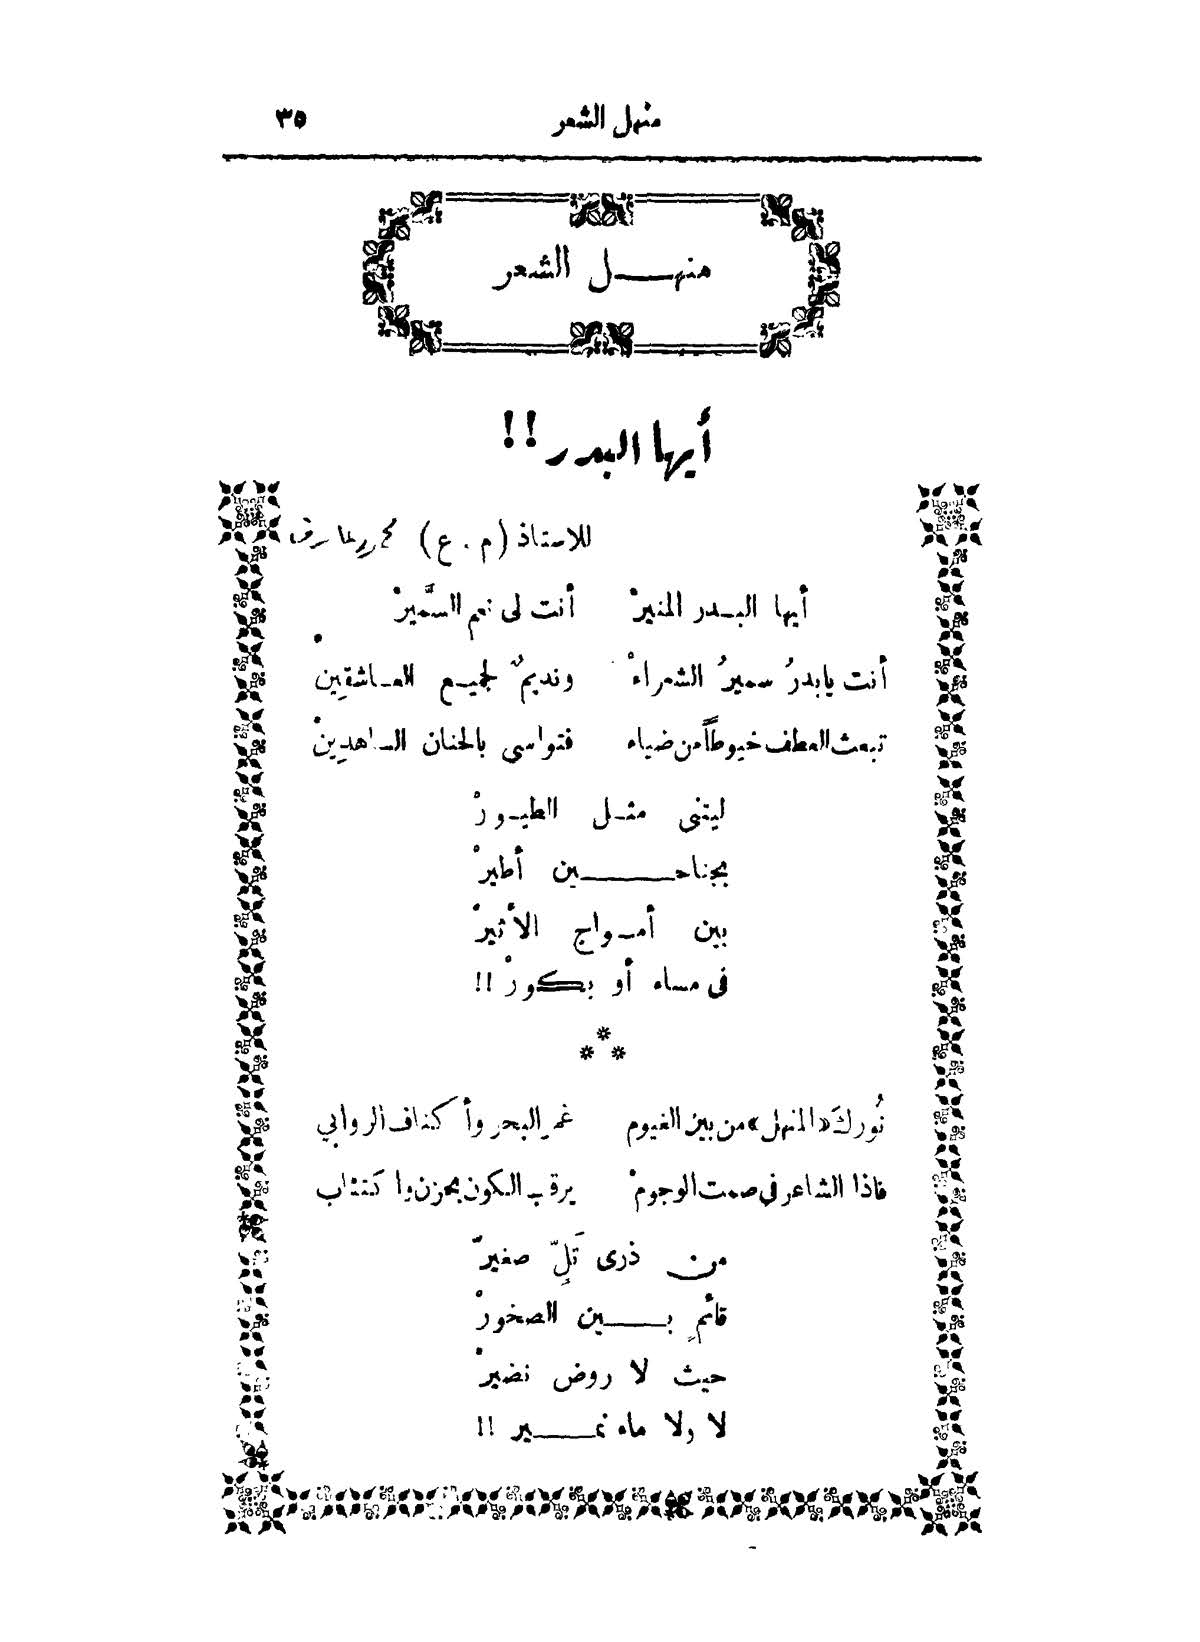 منهل الشعر ٣٥
منهـــل الشعر
أيها البدر !!
للاستاذ (م . ع)
أيها البـدر المنيرْ أنت لى نعم السَّميرْ
أنت يابدرُ سميرُ الشعراءْ ونديمٌ لجميـع العـاشقِينْ
تبعث العطف خيوطاً من ضياء فتواسي بالحنان الساهدِينْ
ليتنى مثـل الطيـورْ
بجناحـــــين أطيرْ
بين أمـواج الأثيرْ
فى مساء أو بكورْ !!
***
نُوركَ «المنهل» من بين الغيوم غمر البحر وأكناف الروابي
فاذا الشاعر في صمت الوجومْ يرقب الكون بحزن واكتئاب
من ذرى تَلٍّ صغيرْ
قائمٍ بـــين الصخورْ
حيث لا روض نضيرْ
لا ولا ماء نمـــير !!